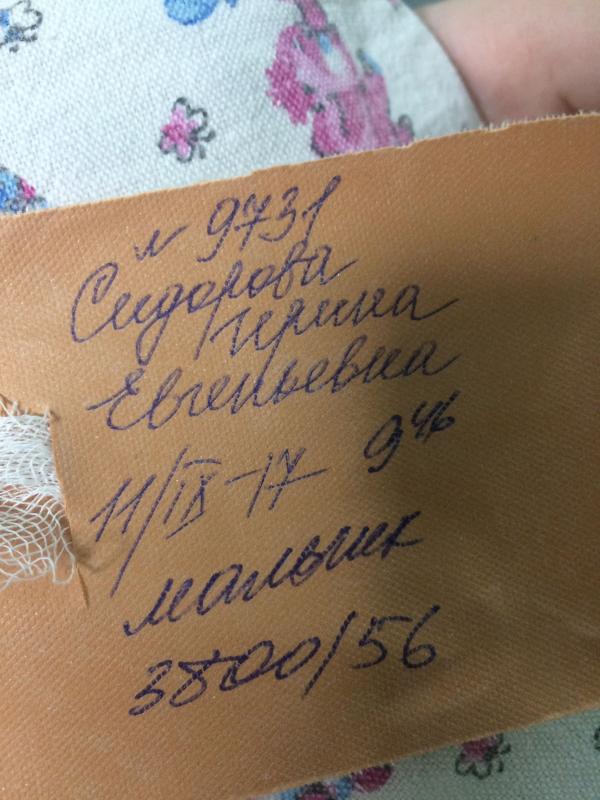 № 9731
Сидорова
Ирина
Евгеньевна
11/IX-17 9 46
мальчик
3800/56